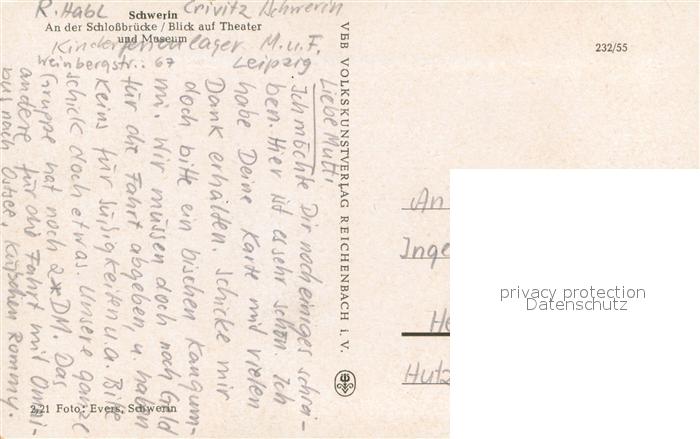 R. Habl Crivitz Schwerin
Schwerin
An der Schloßbrücke / Blick auf Theater
und Museum
Kinderferienlager M.u.F.
Weinbergstr.: 67 Leipzig
232/55
Liebe Mutti
Ich möchte Dir noch einiges schrei-
ben. Hier ist es sehr schön. Ich
habe Deine Karte mit vielen
Dank erhalten. Schicke mir
doch bitte ein bischen Kaugum-
mi. Wir müssen doch noch Geld
für die Fahrt abgeben, u. haben
keins für Süßigkeiten u.a. Bitte
schick doch etwas. Unsere ganze
Gruppe hat noch 2 DM. Das
andere für die Fahrt mit Omni-
bus nach Ostsee. Küßchen Rommy.
VBB VOLKSKUNSTVERLAG REICHENBACH i. V.
An
Inge
He
Hutz
privacy protection
Datenschutz
2,21 Foto: Evers, Schwerin